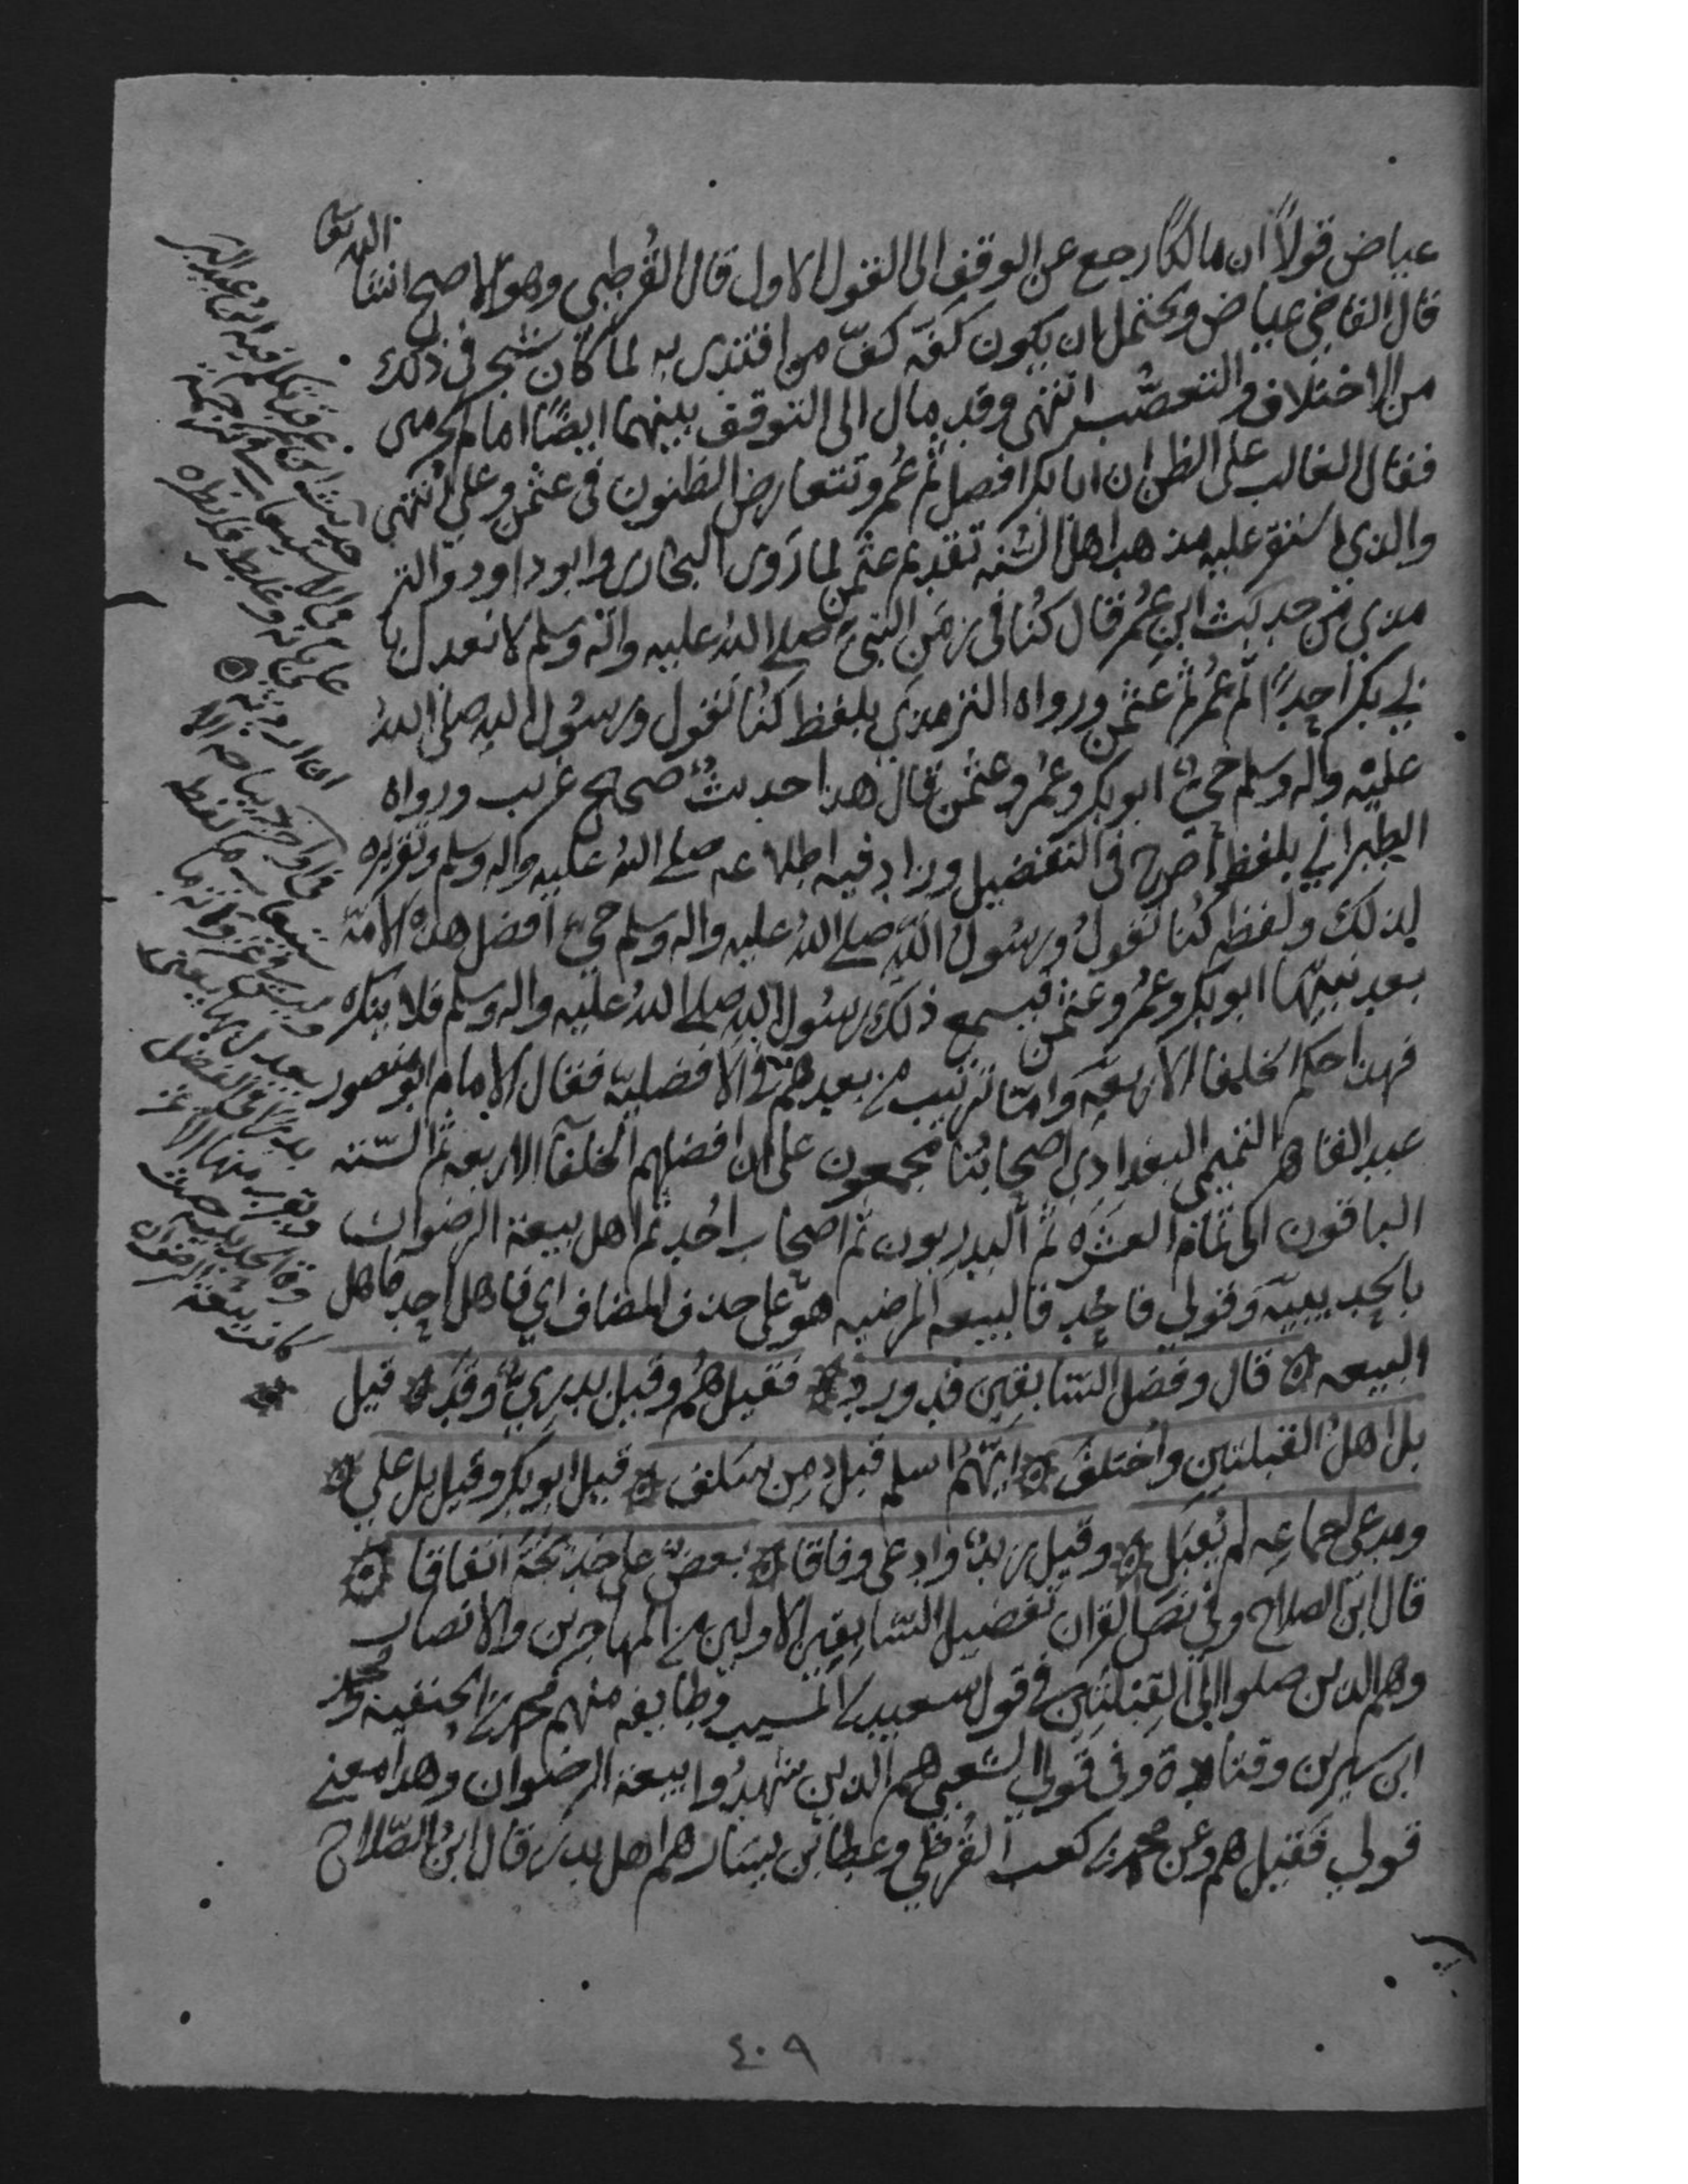 عياض قولاً ان مالكاً رجع عن الوقف الى القول الاول قال القرطبي وهو الاصح ان شا
الله تعا
قال القاضي عياض ويحتمل ان يكون كفه كفّ من اقتدى به لما كان شجر في ذلك
من الاختلاف والتعصّب انتهى وقد مال الى التوقف بينهما ايضًا امام الحرمين
فقال الغالب على الظن ان ابا بكر افضل ثم عُمر وتتعارض الظنون في عثمن وعلي انتهى
والذي استقر عليه مذهب اهل السُنه تقديم عثمن لما رَوى البخاري وابو داود والتر
مذي من حديث ابن عُمر قال كُنا في زمَن النبيّ صلى اللهُ عليه واله وسلم لا نعدل با
بي بكر احدًا ثم عُمر ثم عثمن ورواه الترمذي بلفظ كنُا نقول ورسُول الله صلى اللهُ
عليْه واله وسلم حيٌّ ابو بكر وعمُر وعثمن قال هذا حديثٌ صحيح غريب ورواه
الطبراني بلفظ أصرح في التفضيل وزاد فيه اطلاعه صلى اللهُ عليه واله وسلم وتقريره
لذلك ولفظه كُنا نقولُ ورسُولُ اللهِ صلى اللهُ عليه واله وسلم حيٌ افضل هذه الامّة
بعد نبيّها ابو بكر وعمُر وعثمن فيسمع ذلك رسُول الله صلى اللهُ عليْه واله وسلم فلا ينكره
فهذا حكم الخلفا الاربعَه وَامّا ترتيب من بعدهم في الافضليّه فقال الامام ابو منصور
عبد القاهر التميمي البغدادي اصحابُنا مجمعون على ان افضلهم الخلفآ الاربعه ثم السّته
الباقون الى تمَام العشره ثم البدريون ثم اصحاب احُد ثم اهل بيعة الرضوان
بالحديبيّه وَقولي فاحُد فالبيعه المرضيه هو على حذف المضاف اي فاهل احد فاهل
البيعه ۞ قال وفضل السّابقين قد ورد ۞ فقيل هُم وقيل بدرِيٌّ وقَد ۞ قيل
بل اهلُ القبلتين واُختلفَ ۞ ايّهمُ اسلم قبلُ من سَلفَ ۞ قيل ابو بكر وقيل بل علي ۞
ومدعي اجماعه لم يُقبَل ۞ وقيل زيدٌ وادعى وفاقا ۞ بعضٌ على خديجَةَ اتفاقا ۞
قال ابن الصلاح وفي نصّ القران تفضيل السّابقين الاولين من المهاجرين والانصار
وهم الذين صلوا الى القِبْلتَين في قول سعيد بن المسيب وطايفه منهم محمد بن الحنفيه ومحمد
ابن سيرين وقتادة وفي قول الشعبي هم الذين شهدُوا بيعة الرضوان وهذا معنى
قولي فقيل هم وعن محمد بن كعب القُرظي وعطا بن يسَار هم اهل بدر قال ابنُ الصّلاح
قد تكلم فيه ابن عبد البر
حديث ابن عمر
في الاستيعاب في ترجمة
علي
كانت بيعة الرضوان
٤٠٩